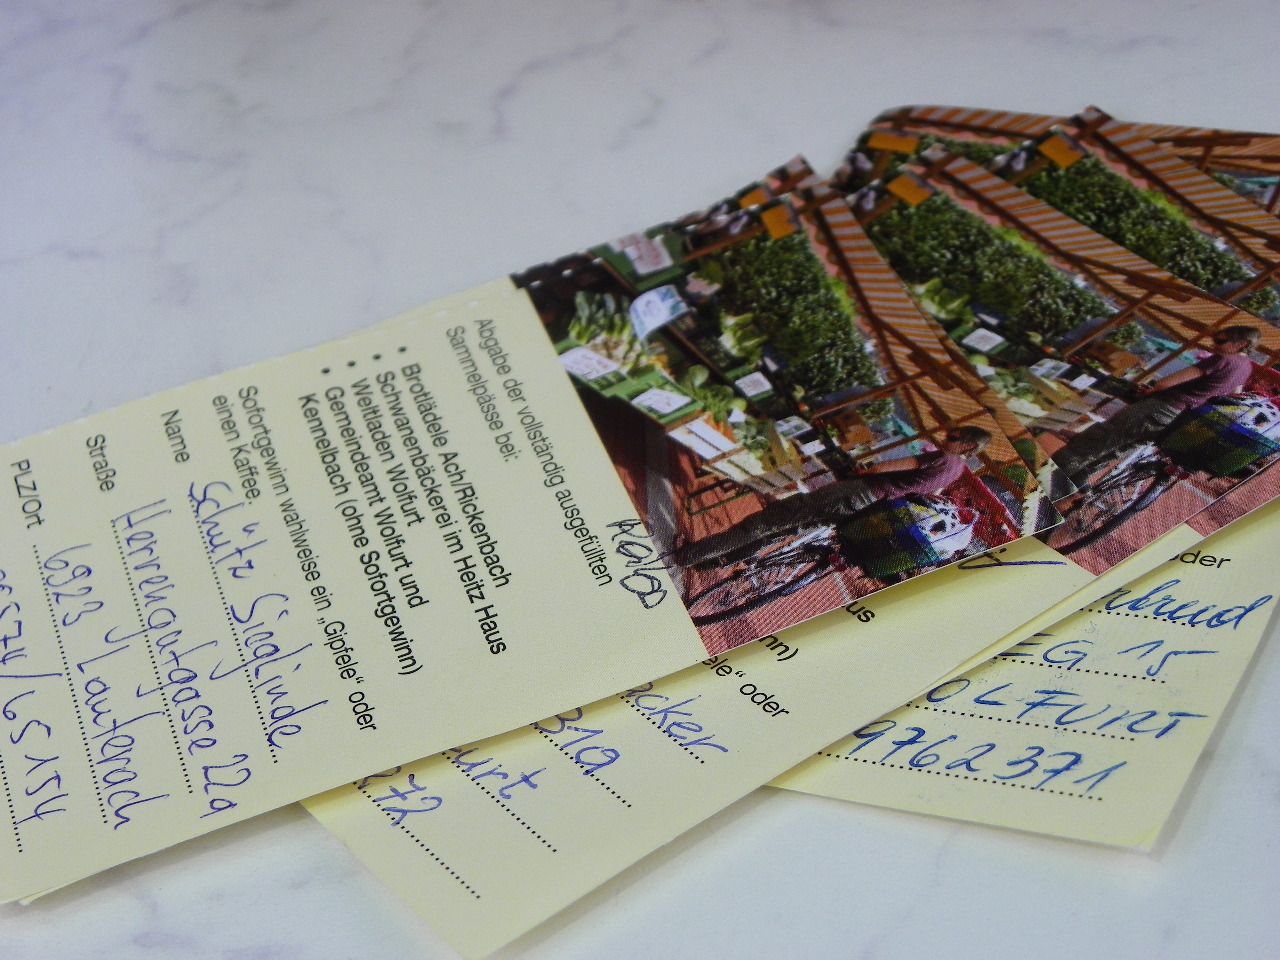 Abgabe der vollständig ausgefüllten
Sammelpässe bei:
• Brotlädele Ach/Rickenbach
• Schwanenbäckerei im Heitz Haus
• Weltladen Wolfurt
• Gemeindeamt Wolfurt und
Kennelbach (ohne Sofortgewinn)
Sofortgewinn wahlweise ein „Gipfele“ oder
einen Kaffee.
Name Schütz Sieglinde
Straße Herrengutgasse 22a
PLZ/Ort 6923 Lauterach
05574/65154
us
nn)
ele“ oder
acker
31a
urt
72
oder
EG 15
OLFURT
9762371